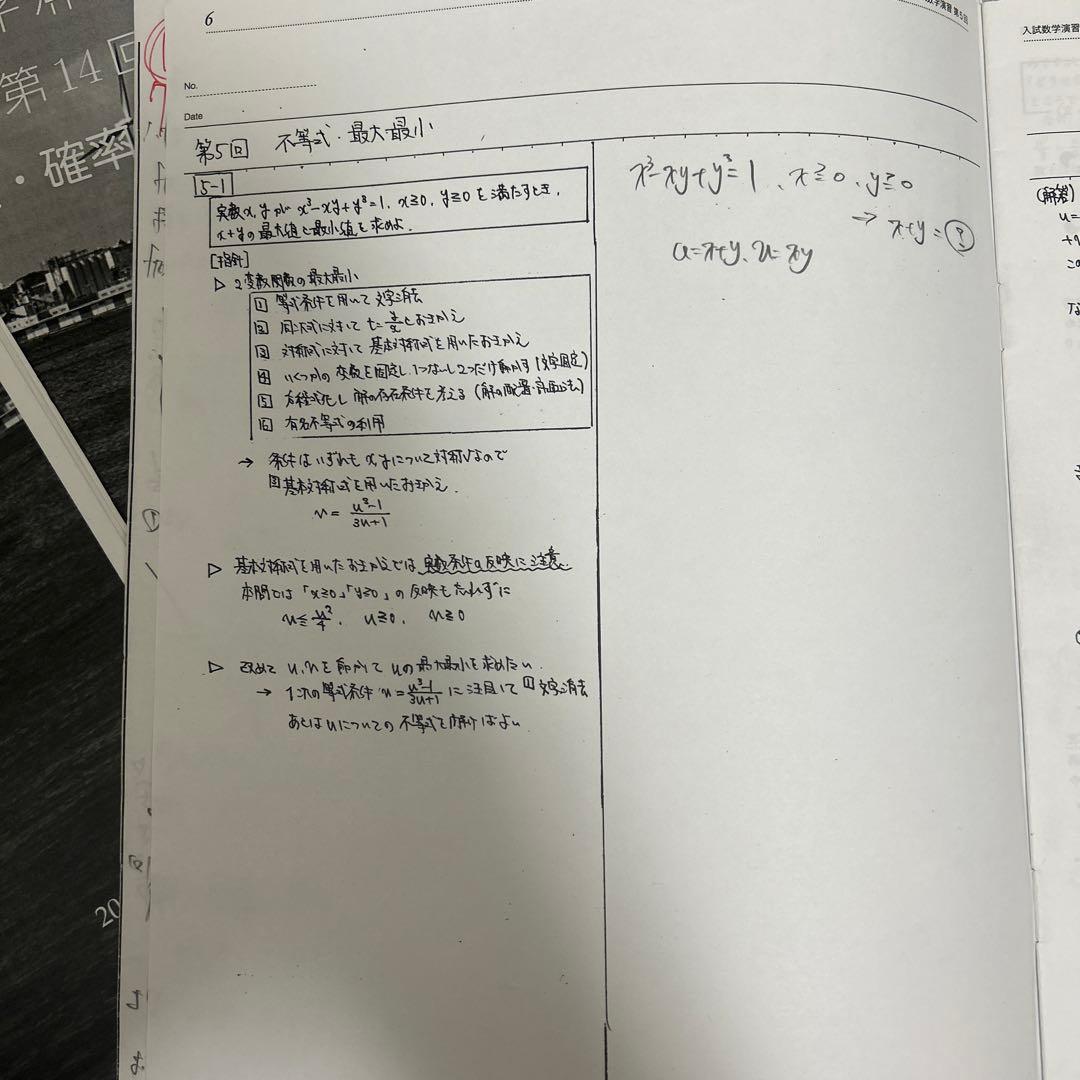 第14回
・確率
20
6
数学演習 第5回
入試数学演習
No.
Date
第5回 不等式・最大最小
5-1
実数x,yが x³-xy+y³=1, x≧0, y≧0 を満たすとき,
x+yの最大値と最小値を求めよ.
[指針]
▷ 2変数関数の最大最小
1 等式条件を用いて文字消去
2 同次式に対して t=y/xとおきかえ
3 対称式に対して 基本対称式を用いたおきかえ
4 いくつかの変数を固定し、1つないし2つだけ動かす(文字固定)
5 方程式化し 解の存在条件を考える (解の配置・計画法)
6 有名不等式の利用
→ 条件はいずれも x,yについて対称なので
3基本対称式を用いたおきかえ.
v = (u³-1)/(3u+1)
▷ 基本対称式を用いたおきかえでは 実数条件の反映に注意
本問では「x≧0」「y≧0」の反映も忘れずに
v≦u²/4, u≧0, v≧0
▷ 改めて u,vを動かして uの最大最小を求めたい.
→ 1つの等式条件 v=(u³-1)/(3u+1) に注目して 1文字消去
あとはuについての不等式を解けばよい
x³-xy+y³=1、x≧0、y≧0
→ x+y=?
u=x+y、v=xy
(解答)
u=